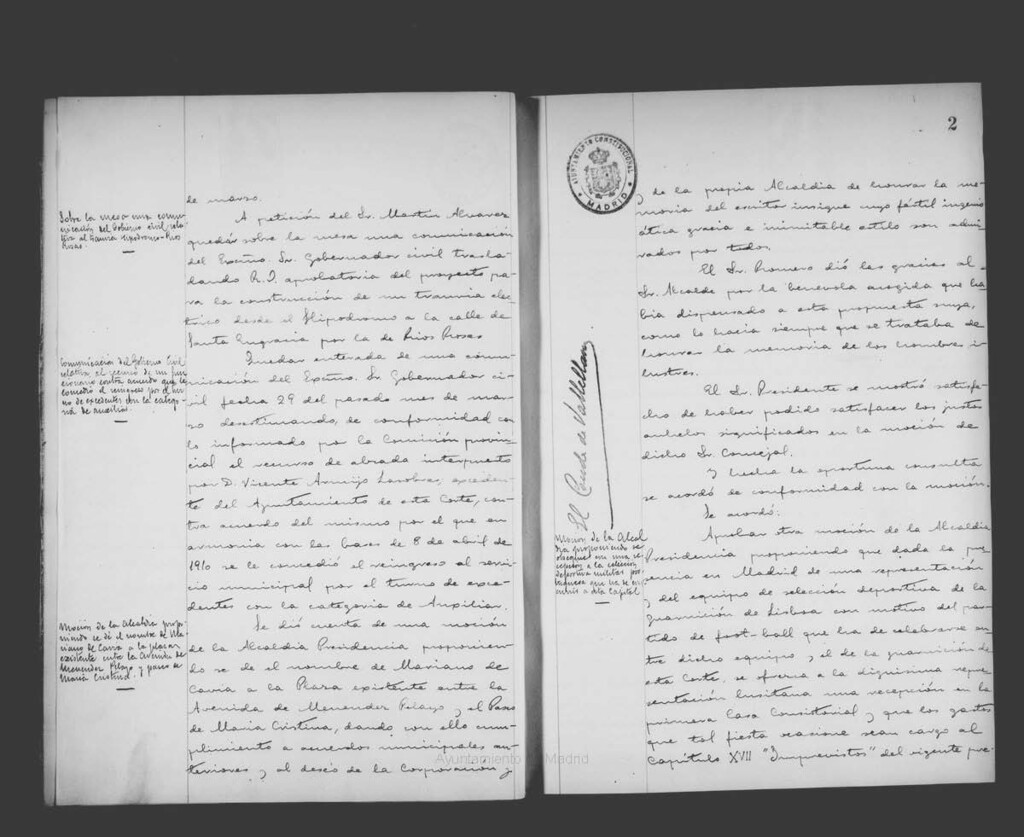 Sobre la mesa una comu-
nicación del Gobierno civil rela-
tiva al tranvía Hipódromo-Ríos
Rosas.
Comunicación del Gobierno Civil
relativa al recurso de un fun-
cionario contra acuerdo que le
concedió el reingreso por el tur-
no de excedentes con la catego-
ría de auxiliar.
Moción de la Alcaldía propo-
niendo se dé el nombre de Ma-
riano de Cavia a la plaza
existente entre la Avenida de
Menéndez Pelayo y paseo de
María Cristina.
de marzo.
A petición del Sr. Martín Alvarez
quedar sobre la mesa una comunicación
del Excmo. Sr. Gobernador civil trasla-
dando R.O. aprobatoria del proyecto pa-
ra la construcción de un tranvía eléc-
trico desde el Hipódromo a la calle de
Santa Engracia por la de Ríos Rosas
Quedar enterada de una comu-
nicación del Excmo. Sr. Gobernador ci-
vil fecha 29 del pasado mes de mar-
zo desestimando, de conformidad con
lo informado por la Comisión provin-
cial el recurso de alzada interpuesto
por D. Vicente Armijo exceden-
te del Ayuntamiento de esta Corte, con-
tra acuerdo del mismo por el que en
armonía con las bases de 8 de abril de
1910 se le concedió el reingreso al servi-
cio municipal por el turno de exce-
dentes con la categoría de Auxiliar.
Se dió cuenta de una moción
de la Alcaldía Presidencia proponien-
do se dé el nombre de Mariano de
Cavia a la Plaza existente entre la
Avenida de Menéndez Pelayo y el Paseo
de María Cristina, dando con ello cum-
plimiento a acuerdos municipales an-
teriores y al deseo de la Corporación y
2
AYUNTAMIENTO CONSTITUCIONAL
MADRID
El Conde de Vallellano
Moción de la Alcal-
día proponiendo se
obsequie con una re-
cepción a la selección
deportiva militar por-
tuguesa que ha de
venir a esta Capital
de la propia Alcaldía de honrar la me-
moria del escritor insigne cuyo fértil ingenio
ática gracia e inimitable estilo son admi-
rados por todos.
El Sr. Romero dió las gracias al
Sr. Alcalde por la benévola acogida que ha-
bía dispensado a esta propuesta suya,
como lo hacía siempre que se trataba de
honrar la memoria de los hombres i-
lustres.
El Sr. Presidente se mostró satisfe-
cho de haber podido satisfacer los justos
anhelos significados en la moción de
dicho Sr. Concejal.
Y hecha la oportuna consulta
se acordó de conformidad con la moción.
Se acordó:
Aprobar otra moción de la Alcaldía
Presidencia proponiendo que dada la pre-
sencia en Madrid de una representación
y del equipo de selección deportiva de la
guarnición de Lisboa con motivo del par-
tido de foot-ball que ha de celebrarse en-
tre dicho equipo y el de la guarnición de
esta Corte, se ofrezca a la dignísima repre-
sentación lusitana una recepción en la
primera Casa Consistorial y que los gastos
que tal fiesta ocasione sean cargo al
Capítulo XVII "Imprevistos" del vigente pre-
Ayuntamiento de Madrid